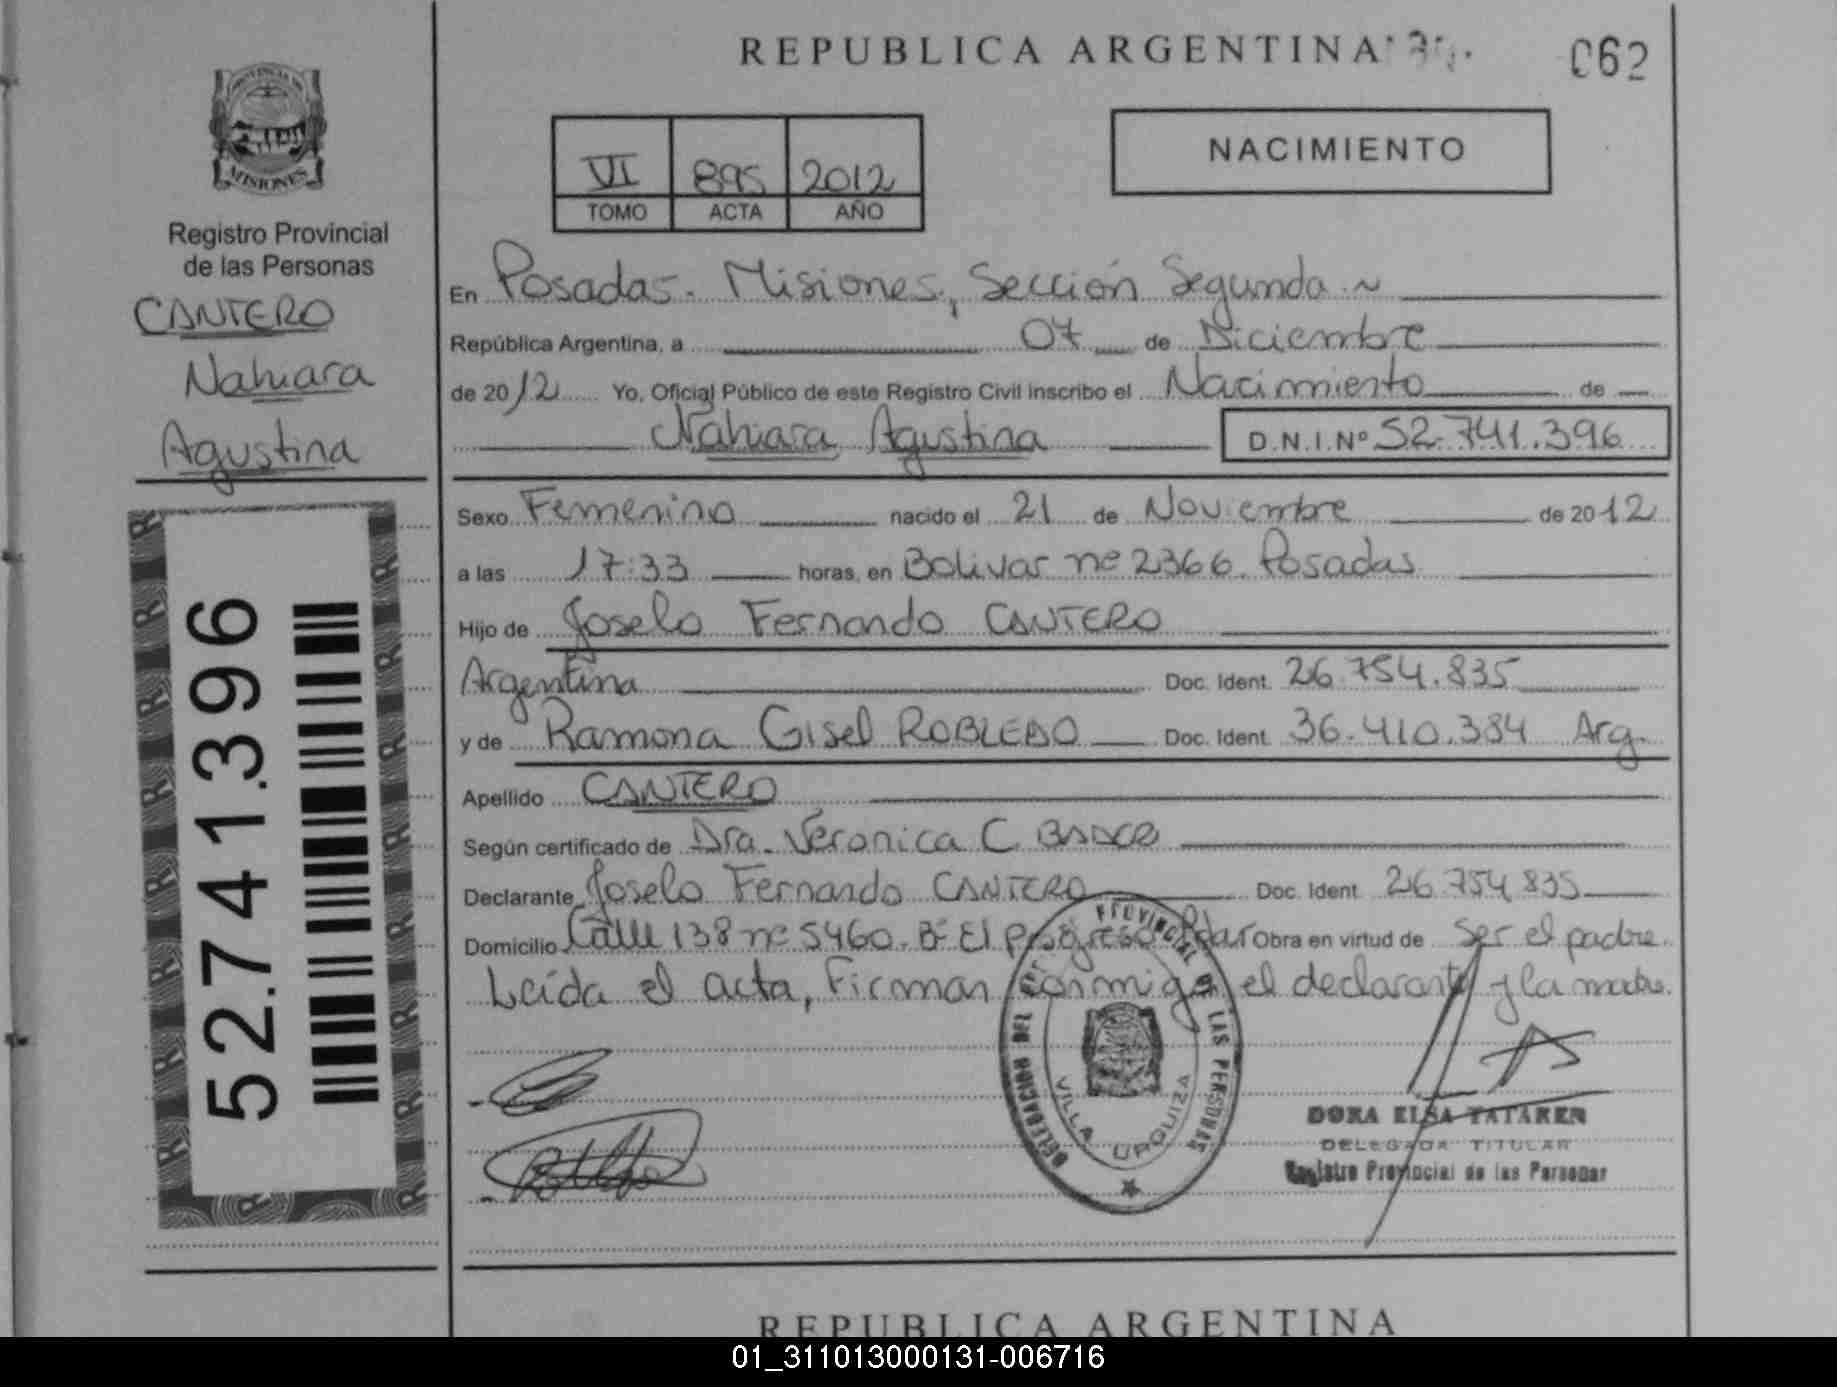 REPUBLICA ARGENTINA
062
PROVINCIA DE
MISIONES
Registro Provincial
de las Personas
CANTERO
Nahiara
Agustina
52.741.396
VI 895 2012
TOMO ACTA AÑO
NACIMIENTO
En Posadas. Misiones, Sección Segunda
República Argentina, a 07 de Diciembre
de 2012 Yo, Oficial Público de este Registro Civil inscribo el Nacimiento de
Nahiara Agustina D.N.I.Nº 52.741.396
Sexo Femenino nacido el 21 de Noviembre de 2012
a las 17:33 horas, en Bolivar nº 2366. Posadas
Hijo de Joselo Fernando CANTERO
Argentina Doc. Ident. 26.754.835
y de Ramona Gisel ROBLEDO Doc. Ident. 36.410.384 Arg.
Apellido CANTERO
Según certificado de Dra. Veronica C.
Declarante Joselo Fernando CANTERO Doc. Ident. 26.754.835
Domicilio Calle 138 nº 5460. Bº El progreso Obra en virtud de ser el padre.
Leída el acta, Firman conmigo el declarante y la madre.
DELEGACION DEL PROVINCIAL DE LAS PERSONAS
VILLA URQUIZA
DORA ELSA TATAREN
DELEGADA TITULAR
Registro Provincial de las Personas
REPUBLICA ARGENTINA
01_311013000131-006716